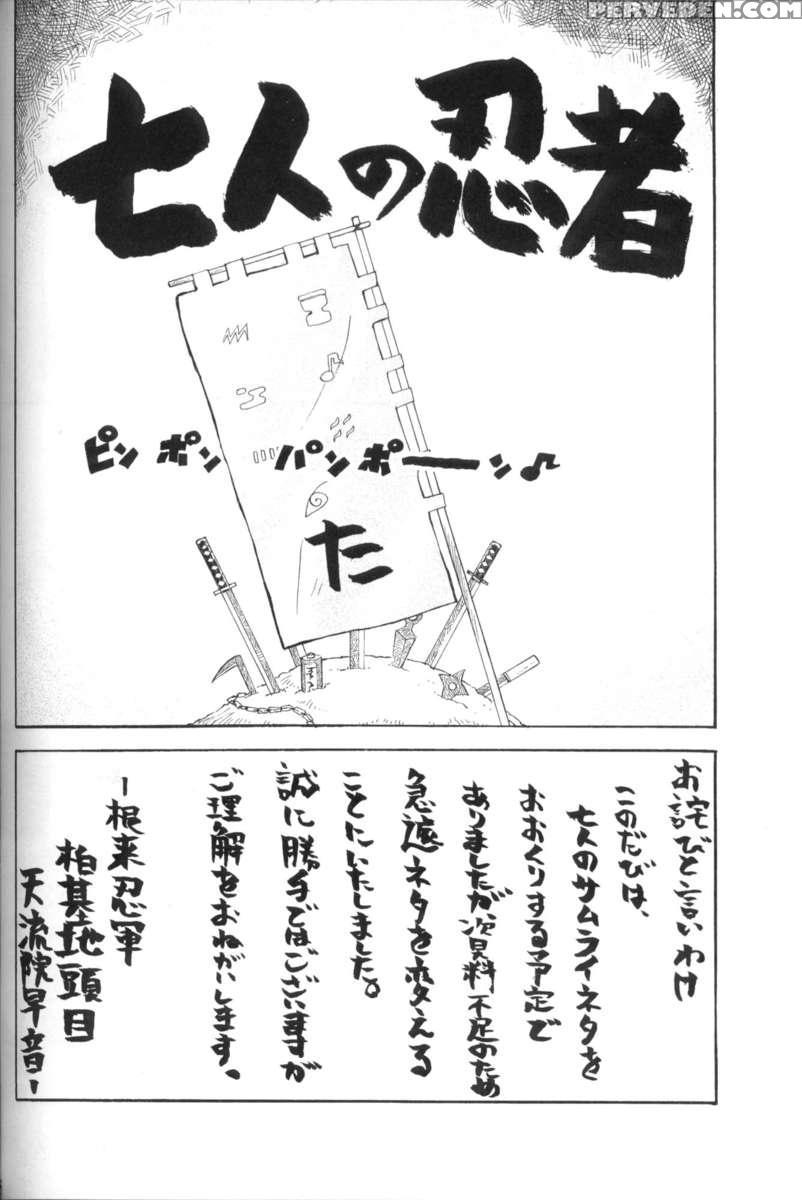 PERVEDEN.COM
七人の忍者
ピンポンパンポーン♪
た
お詫びと言いわけ
このたびは、
七人のサムライネタを
おおくりする予定で
ありましたが資料不足のため
急遽ネタを変える
ことにいたしました。
誠に勝手ではございますが
ご理解をおねがいします。
ー根来忍軍
柏基地頭目
天流院早音ー